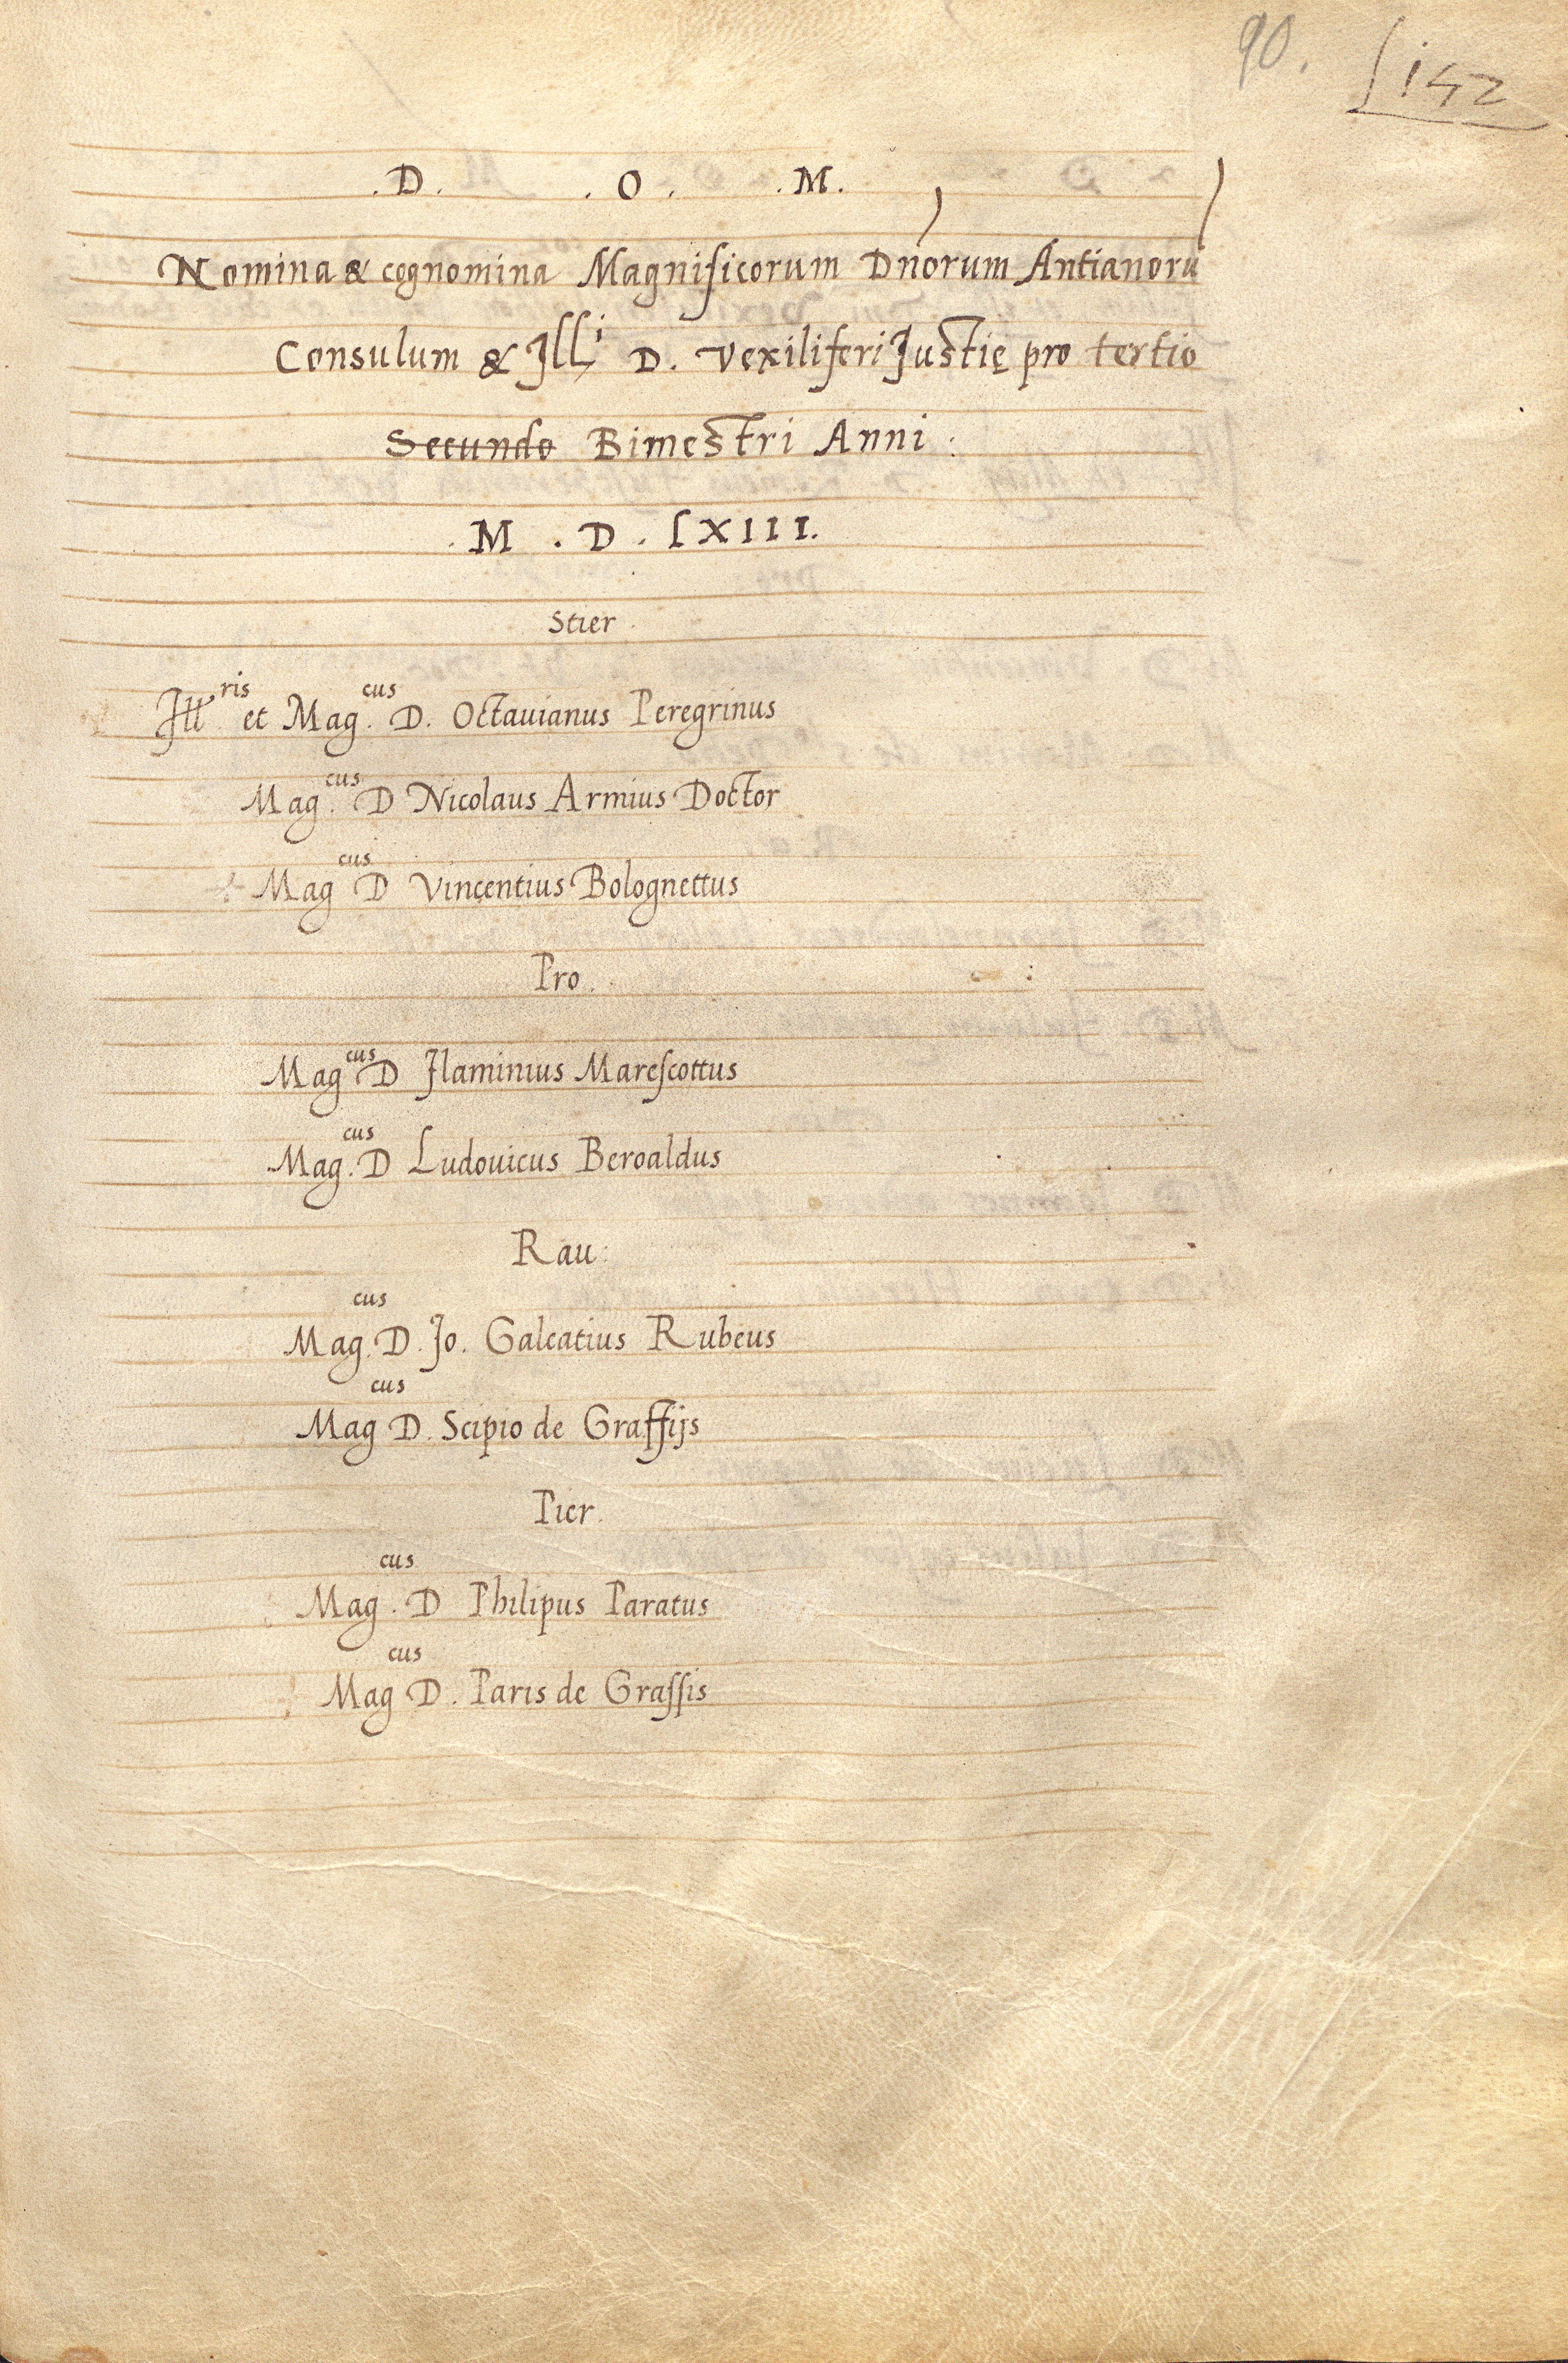 90. 142
.D. .O. .M.
Nomina & cognomina Magnificorum Dñorum Antianorū
Consulum & Illⁱ D. Vexiliferi Justię pro tertio
Secundo Bimestri Anni:
.M.D.LXIII.
Stier.
Ill.ʳⁱˢ et Mag.ᶜᵘˢ D. Octavianus Peregrinus
Mag.ᶜᵘˢ D Nicolaus Armius Doctor
Mag ᶜᵘˢ D Vincentius Bolognettus
Pro.
Mag ᶜᵘˢ D Flaminius Mareſcottus
Mag.ᶜᵘˢ D Ludouicus Beroaldus
Rau:
Mag.ᶜᵘˢ D. Jo. Galeatius Rubeus
Mag ᶜᵘˢ D. Scipio de Graſſijs
Pier.
Mag.ᶜᵘˢ D Philipus Paratus
Mag ᶜᵘˢ D. Paris de Graſſis